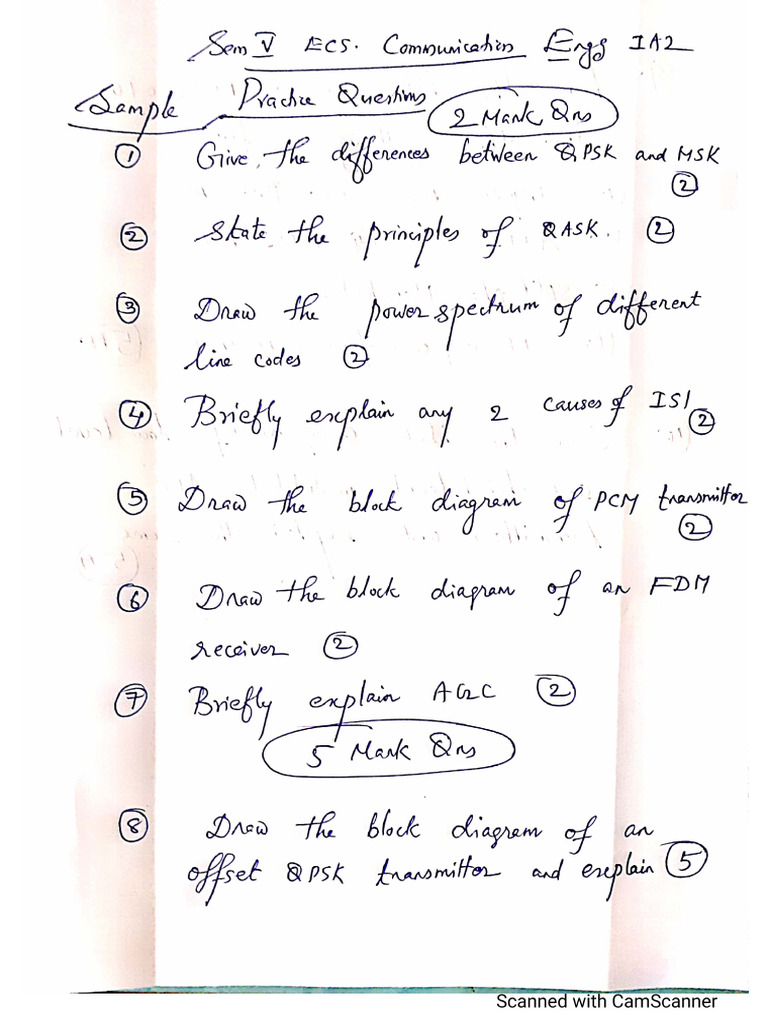 Sem V ECS. Communication Engg IA2
Sample Practice Questions 2 Mark Qns
① Give the differences between QPSK and MSK
②
② State the principles of QASK. ②
③ Draw the power spectrum of different
line codes ②
④ Briefly explain any 2 causes of ISI
②
⑤ Draw the block diagram of PCM transmittor
②
⑥ Draw the block diagram of an FDM
receiver ②
⑦ Briefly explain AGC ②
5 Mark Qns
⑧ Draw the block diagram of an
offset QPSK transmittor and explain ⑤
Scanned with CamScanner